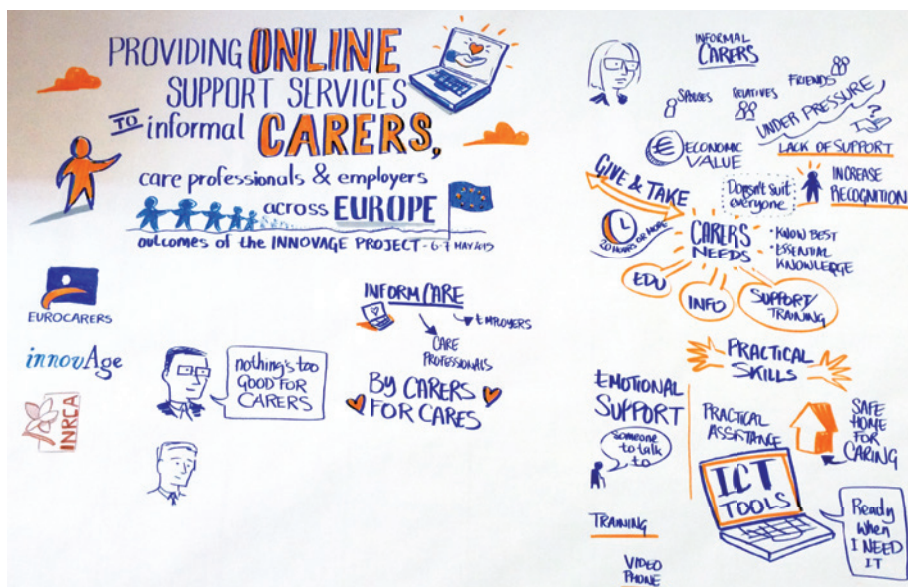 PROVIDING ONLINE
SUPPORT SERVICES
TO informal CARERS,
care professionals & employers
across EUROPE
outcomes of the INNOVAGE PROJECT - 6-7 MAY 2015
EUROCARERS
innovAge
INRCA
nothing's too
GOOD FOR
CARERS
INFORM CARE
EMPLOYERS
CARE
PROFESSIONALS
BY CARERS
FOR CARES
INFORMAL
CARERS
SPOUSES
RELATIVES
FRIENDS
UNDER PRESSURE
?
LACK OF SUPPORT
€ ECONOMIC
VALUE
INCREASE
RECOGNITION
Doesn't suit
everyone
GIVE & TAKE
20 HOURS OR MORE
CARERS
NEEDS
• KNOW BEST
• ESSENTIAL
KNOWLEDGE
EDU
INFO
SUPPORT/
TRAINING
PRACTICAL
SKILLS
EMOTIONAL
SUPPORT
someone
to talk
to
PRACTICAL
ASSISTANCE
SAFE
HOME
FOR
CARING
ICT
TOOLS
Ready
when
I NEED
IT
TRAINING
VIDEO
PHONE